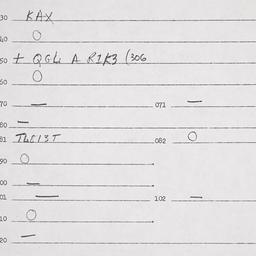 30 KAX
40 O
50 + QGL A RIK3 (306
60 O
70 — 071 —
80 —
81 TLEI3T 082 O
90 O
00 —
01 — 102 —
10 O
20 —